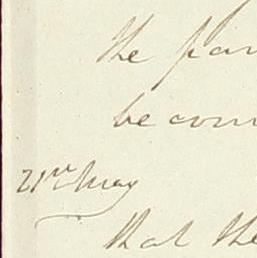 the
be com
21st May
that the